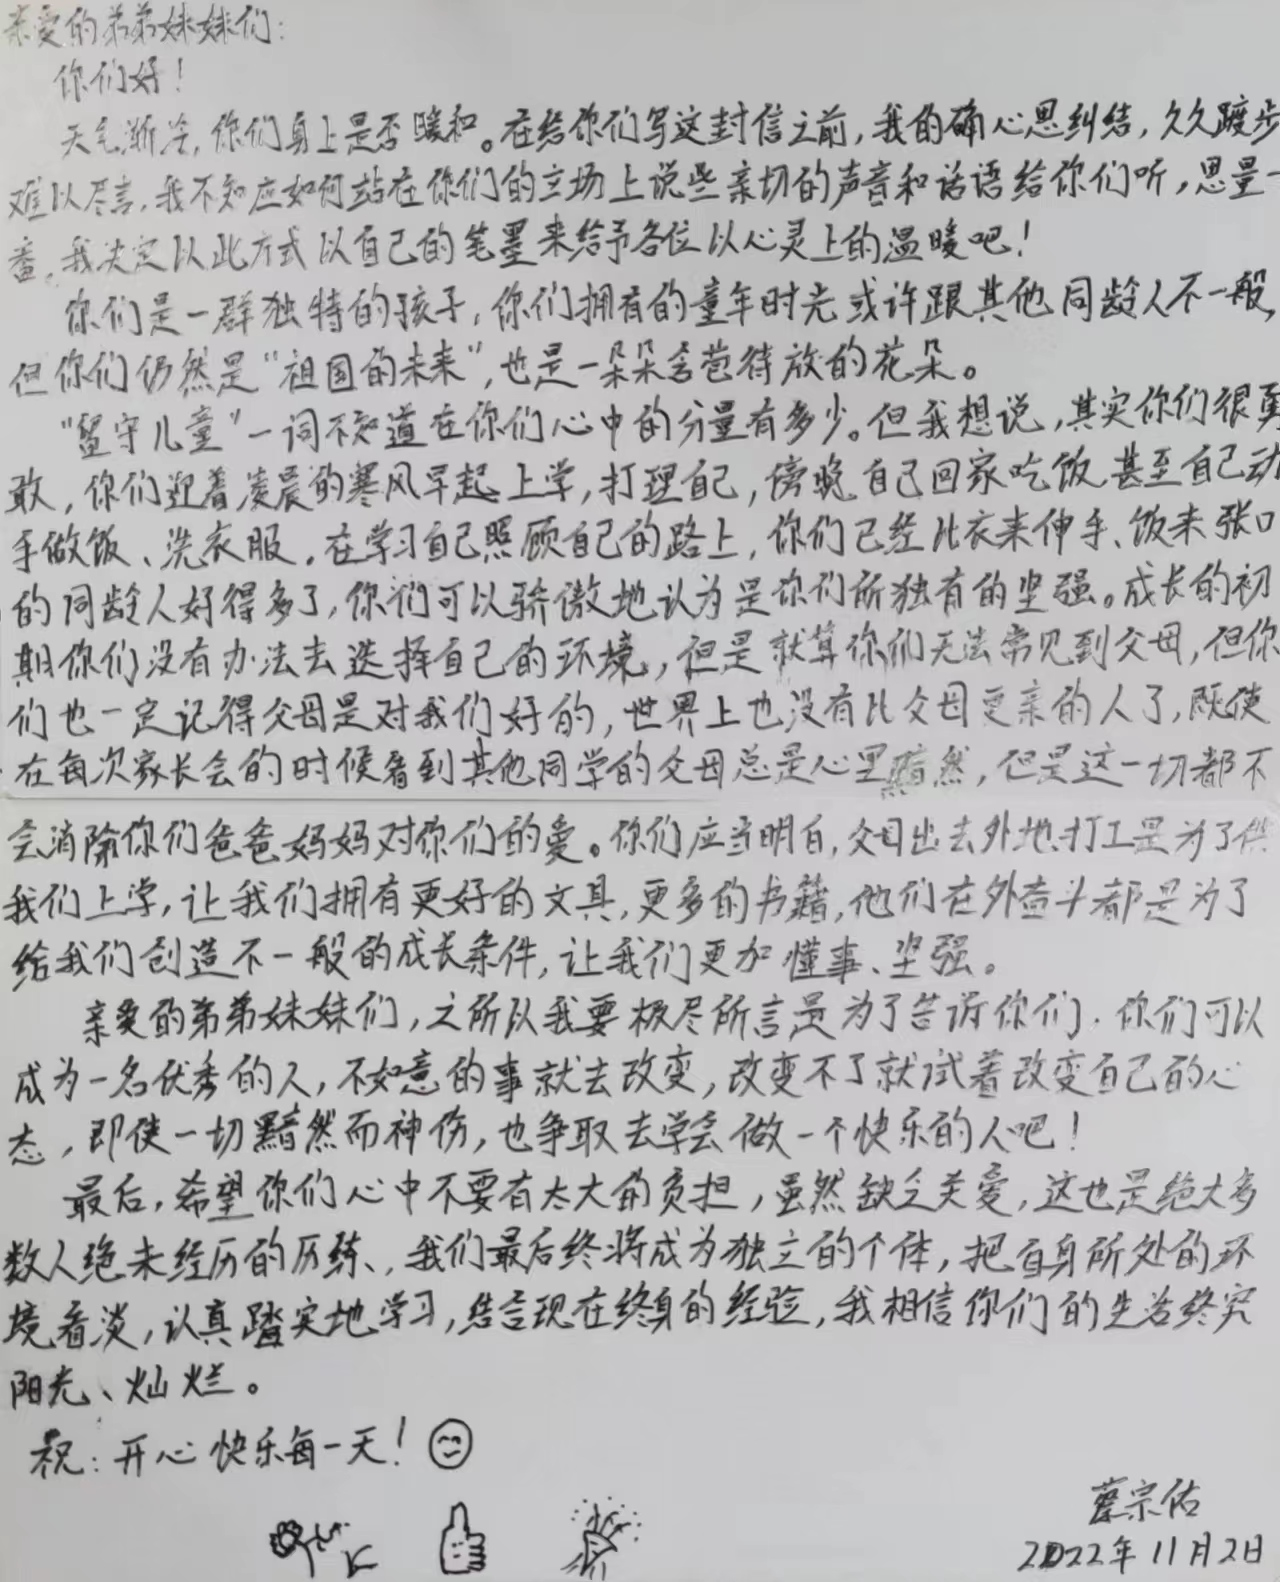 亲爱的弟弟妹妹们：
你们好！
天气渐冷，你们身上是否暖和。在给你们写这封信之前，我的确心思纠结，久久踱步
难以尽言，我不知应如何站在你们的立场上说些亲切的声音和话语给你们听，思量一
番，我决定以此方式以自己的笔墨来给予各位以心灵上的温暖吧！
你们是一群独特的孩子，你们拥有的童年时光或许跟其他同龄人不一般，
但你们仍然是“祖国的未来”，也是一朵朵含苞待放的花朵。
“留守儿童”一词不知道在你们心中的分量有多少。但我想说，其实你们很勇
敢，你们迎着凌晨的寒风早起上学，打理自己，傍晚自己回家吃饭甚至自己动
手做饭、洗衣服。在学习自己照顾自己的路上，你们已经比衣来伸手、饭来张口
的同龄人好得多了，你们可以骄傲地认为是你们所独有的坚强。成长的初
期你们没有办法去选择自己的环境，但是就算你们无法常见到父母，但你
们也一定记得父母是对我们好的，世界上也没有比父母更亲的人了，既使
在每次家长会的时候看到其他同学的父母总是心里黯然，但是这一切都不
会消除你们爸爸妈妈对你们的爱。你们应当明白，父母出去外地打工是为了供
我们上学，让我们拥有更好的文具，更多的书籍，他们在外奋斗都是为了
给我们创造不一般的成长条件，让我们更加懂事、坚强。
亲爱的弟弟妹妹们，之所以我要极尽所言是为了告诉你们，你们可以
成为一名优秀的人，不如意的事就去改变，改变不了就试着改变自己的心
态，即使一切黯然而神伤，也争取去学会做一个快乐的人吧！
最后，希望你们心中不要有太大的负担，虽然缺乏关爱，这也是绝大多
数人绝未经历的历练、我们最后终将成为独立的个体，把自身所处的环
境看淡，认真踏实地学习，结合现在终身的经验，我相信你们的生活终究
阳光、灿烂。
祝：开心快乐每一天！
蔡宗佑
2022年11月2日